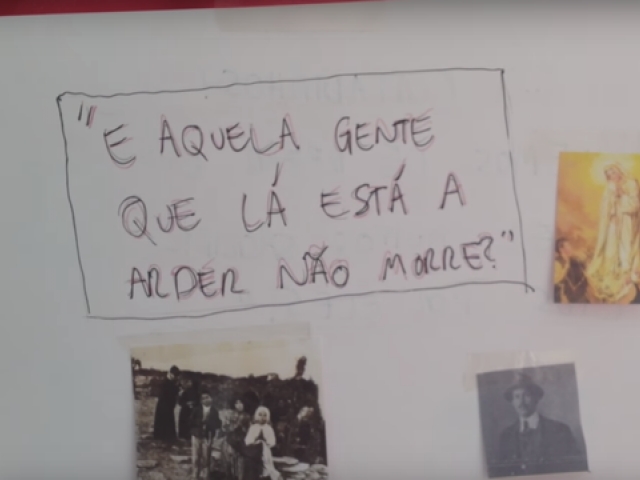 "E AQUELA GENTE
QUE LÁ ESTÁ A
ARDER NÃO MORRE?"